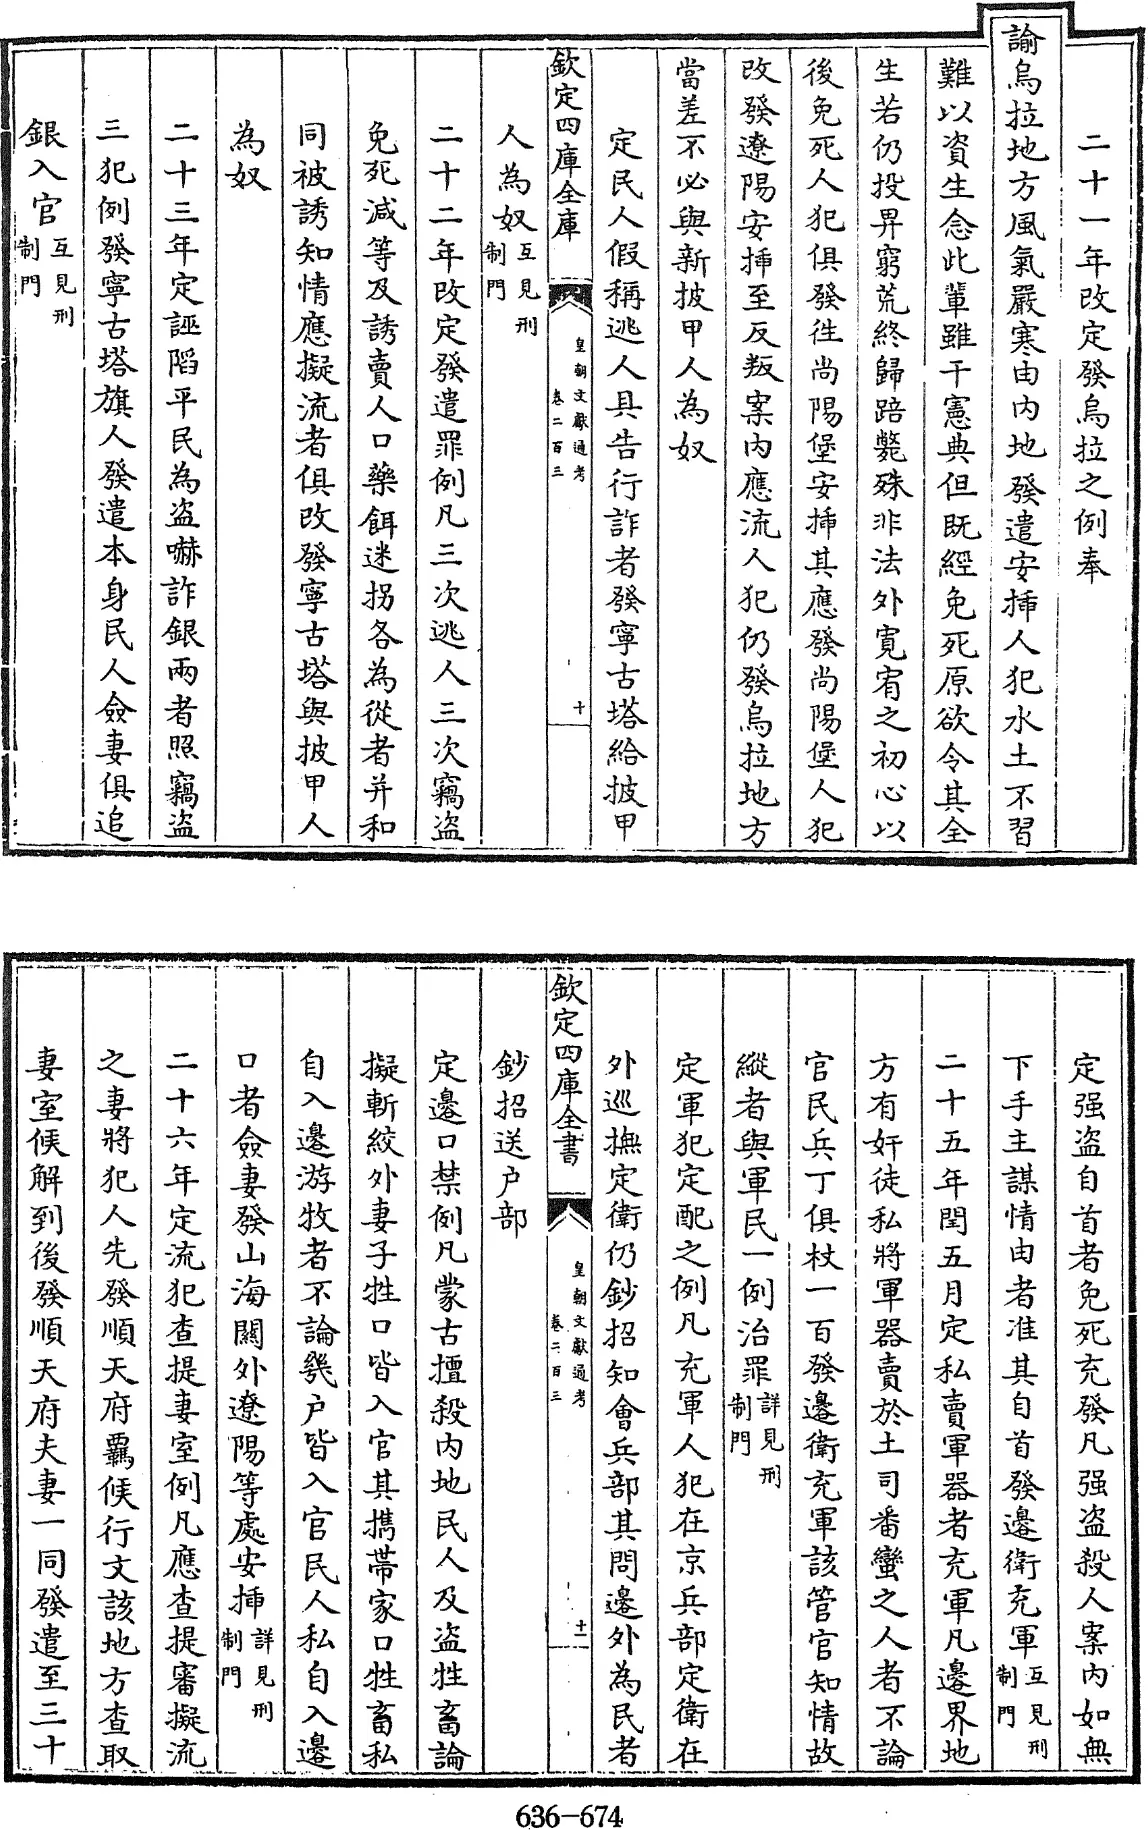 二十一年改定發烏拉之例奉
諭烏拉地方風氣嚴寒由内地發遣安揷人犯水土不習
難以資生念此輩雖干憲典但既經免死原欲令其全
生若仍投畀窮荒終歸踣斃殊非法外寛宥之初心以
後免死人犯俱發徃尚陽堡安揷其應發尚陽堡人犯
改發遼陽安揷至反叛案内應流人犯仍發烏拉地方
當差不必與新披甲人為奴
定民人假稱逃人具告行詐者發寧古塔給披甲
欽定四庫全庫
皇朝文獻通考
卷二百三
十
人為奴互見刑制門
二十二年改定發遣罪例凡三次逃人三次竊盜
免死減等及誘賣人口藥餌迷拐各為從者并和
同被誘知情應擬流者俱改發寧古塔與披甲人
為奴
二十三年定誣陷平民為盜嚇詐銀兩者照竊盜
三犯例發寧古塔旗人發遣本身民人僉妻俱追
銀入官互見刑制門
定强盜自首者免死充發凡强盜殺人案内如無
下手主謀情由者准其自首發邊衛充軍互見刑制門
二十五年閏五月定私賣軍器者充軍凡邊界地
方有奸徒私將軍器賣於土司番蠻之人者不論
官民兵丁俱杖一百發邊衛充軍該管官知情故
縱者與軍民一例治罪詳見刑制門
定軍犯定配之例凡充軍人犯在京兵部定衛在
外巡撫定衛仍鈔招知會兵部其問邊外為民者
欽定四庫全書
皇朝文獻通考
卷二百三
十一
鈔招送户部
定邊口禁例凡蒙古擅殺内地民人及盜牲畜論
擬斬絞外妻子牲口皆入官其携帶家口牲畜私
自入邊游牧者不論幾户皆入官民人私自入邊
口者僉妻發山海關外遼陽等處安揷詳見刑制門
二十六年定流犯查提妻室例凡應查提審擬流
之妻將犯人先發順天府覊候行文該地方查取
妻室候解到後發順天府夫妻一同發遣至三十
636-674